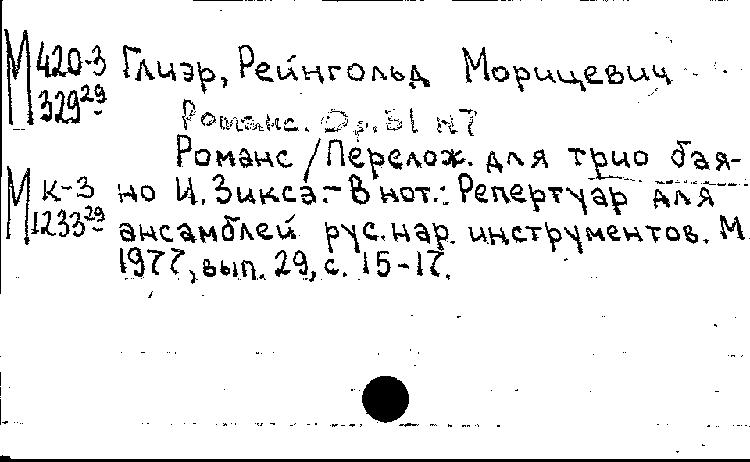 М 420-3 Глиэр, Рейнгольд Морицевич
329 29
Романс. Op. 51 №7
Романс / Перелож. для трио бая-
М к-3 но И. Зикса. - В нот.: Репертуар для
1233 29 ансамблей рус. нар. инструментов. М
1977, вып. 29, с. 15-17.